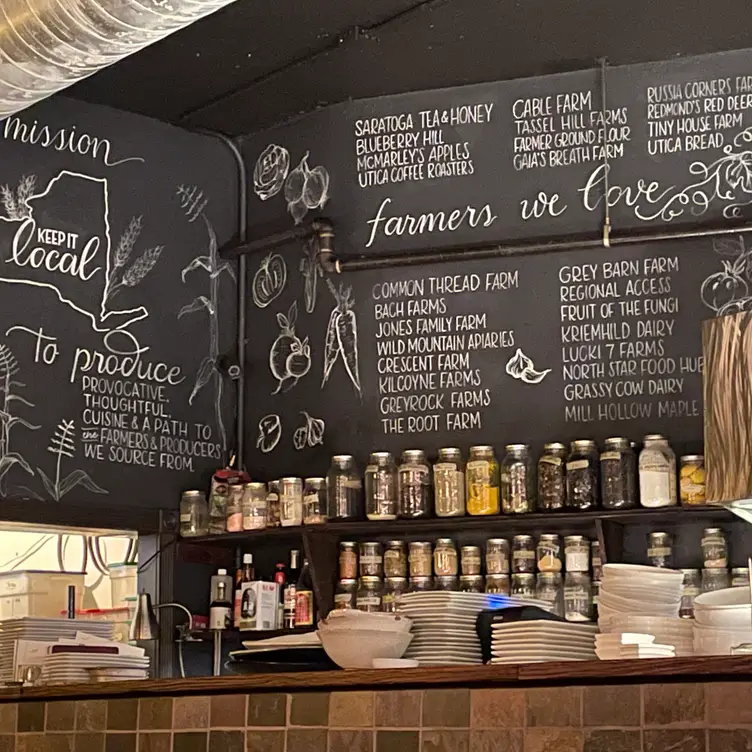 mission
KEEP IT
local
to produce
PROVOCATIVE,
THOUGHTFUL,
CUISINE & A PATH TO
the FARMERS & PRODUCERS
WE SOURCE FROM.
SARATOGA TEA & HONEY
BLUEBERRY HILL
MCMARLEY'S APPLES
UTICA COFFEE ROASTERS
CABLE FARM
TASSEL HILL FARMS
FARMER GROUND FLOUR
GAIA'S BREATH FARM
RUSSIA CORNERS FAR
REDMOND'S RED DEER
TINY HOUSE FARM
UTICA BREAD
farmers we love
COMMON THREAD FARM
BACH FARMS
JONES FAMILY FARM
WILD MOUNTAIN APIARIES
CRESCENT FARM
KILCOYNE FARMS
GREYROCK FARMS
THE ROOT FARM
GREY BARN FARM
REGIONAL ACCESS
FRUIT OF THE FUNGI
KRIEMHILD DAIRY
LUCKI 7 FARMS
NORTH STAR FOOD HUB
GRASSY COW DAIRY
MILL HOLLOW MAPLE